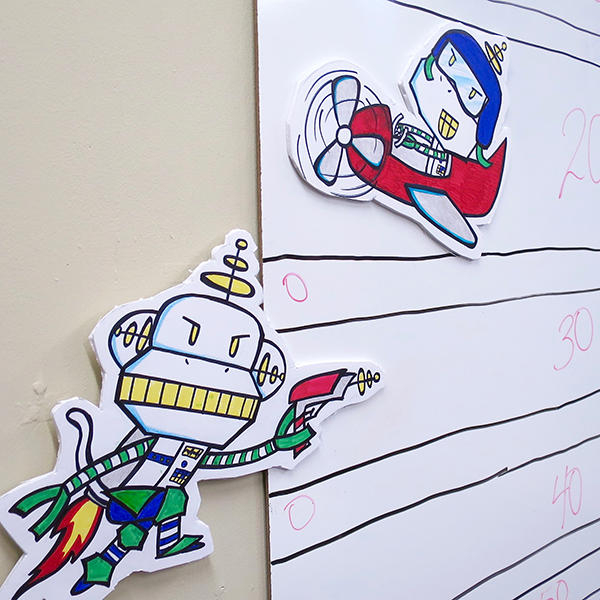 20
0
30
0
40
50